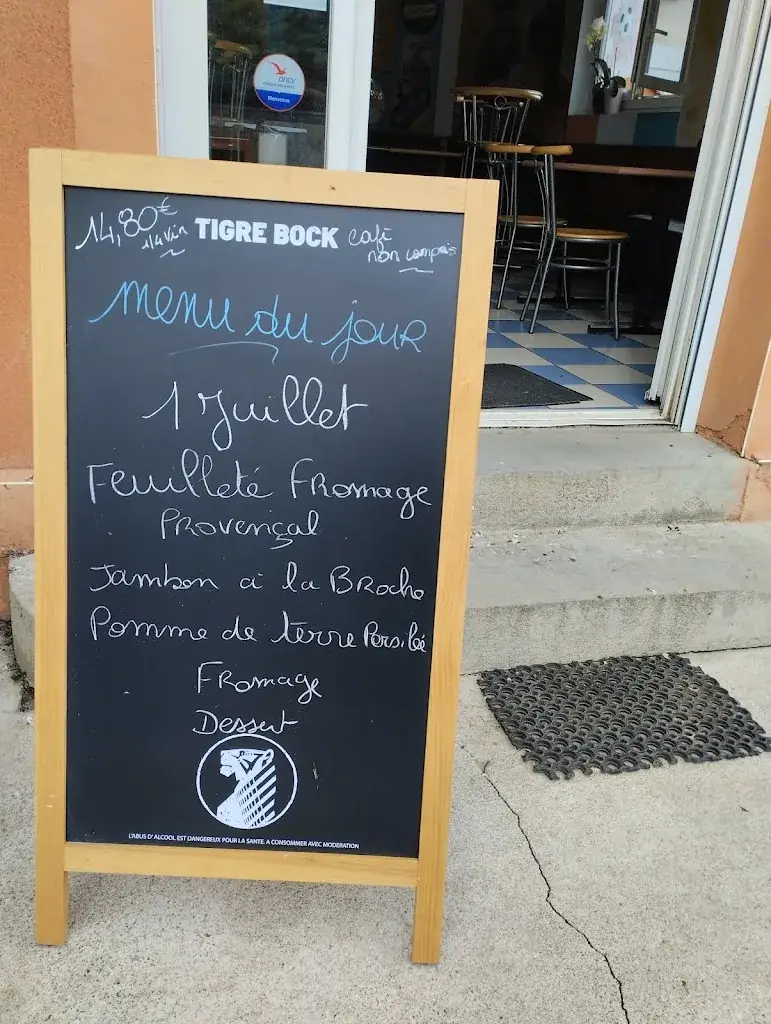 ancv
Bienvenue
14,80€
1/4 vin
TIGRE BOCK
café
non compris
menu du jour
1 Juillet
Feuilleté Fromage
Provençal
Jambon à la Broche
Pomme de terre Persilée
Fromage
Dessert
L'ABUS D'ALCOOL EST DANGEREUX POUR LA SANTE. A CONSOMMER AVEC MODERATION